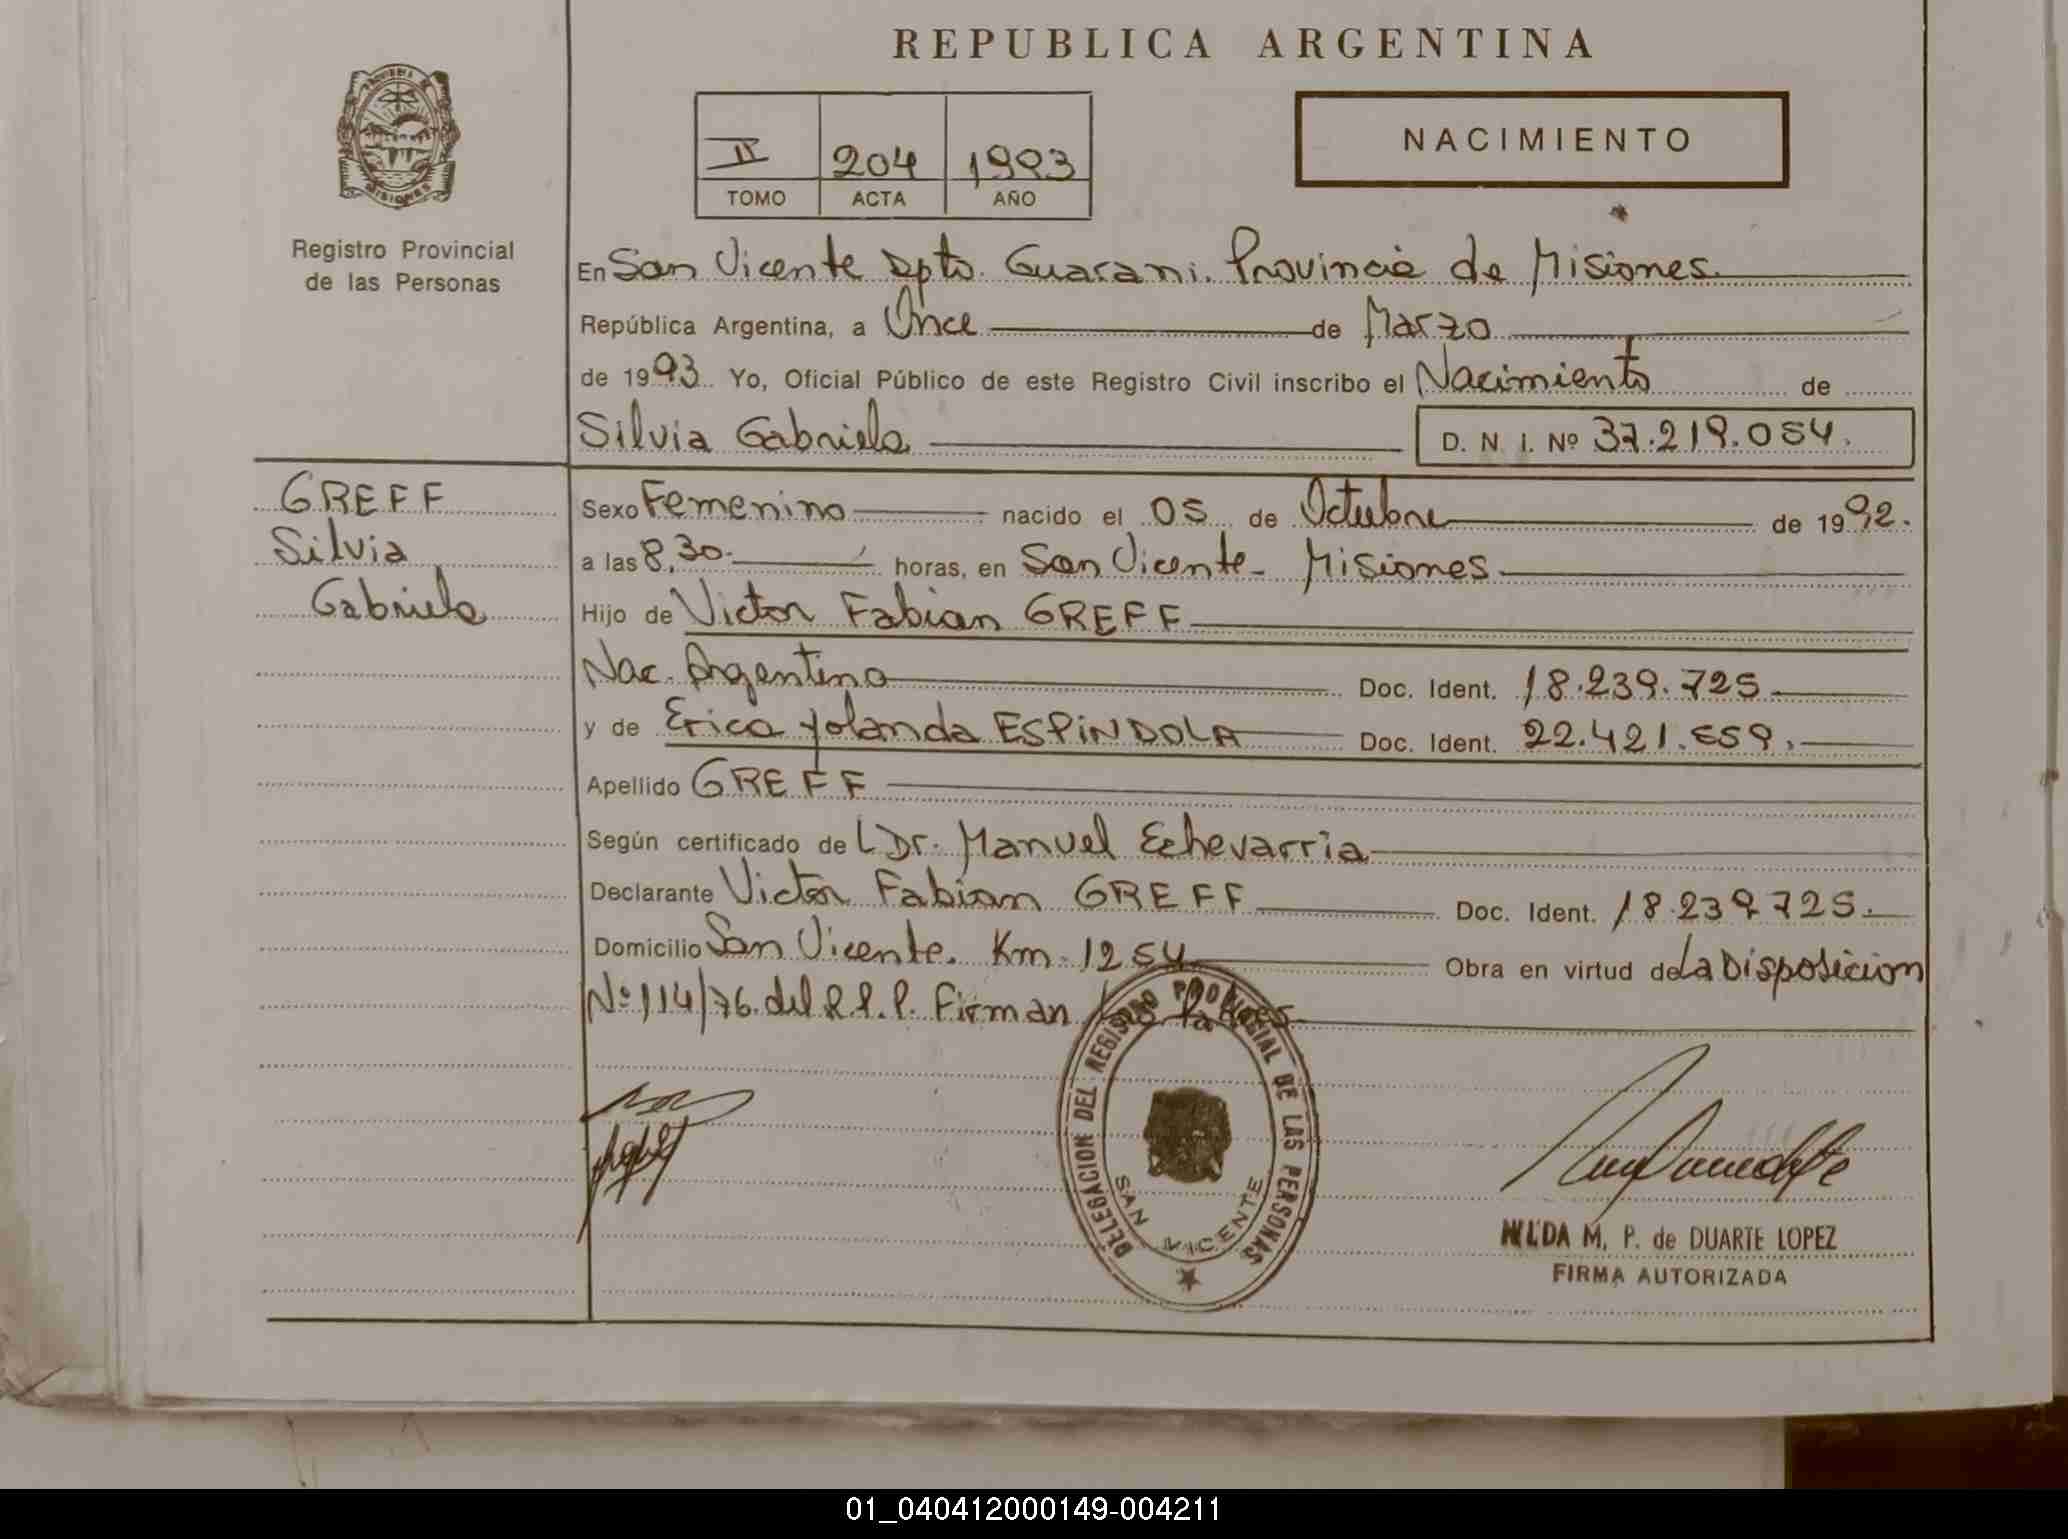 REPUBLICA ARGENTINA
II 204 1993
TOMO ACTA AÑO
NACIMIENTO
MISIONES
Registro Provincial
de las Personas
En San Vicente Dpto. Guarani. Provincia de Misiones.
República Argentina, a Once de Marzo
de 1993. Yo, Oficial Público de este Registro Civil inscribo el Nacimiento de
Silvia Gabriela
D. N. I. Nº 37.219.054.
GREFF
Silvia
Gabriela
Sexo Femenino nacido el 05 de Octubre de 1992.
a las 8,30. horas, en San Vicente - Misiones
Hijo de Victor Fabian GREFF
Nac. Argentino Doc. Ident. 18.239.725
y de Erica Yolanda ESPINDOLA Doc. Ident. 22.421.559.
Apellido GREFF
Según certificado del Dr. Manuel Echevarria
Declarante Victor Fabian GREFF Doc. Ident. 18.239.725.
Domicilio San Vicente. Km. 1254 Obra en virtud de La Disposicion
Nº 114/76. del R.P.P. Firman los Padres
DELEGACION DEL REGISTRO PROVINCIAL DE LAS PERSONAS
SAN VICENTE
M. P. de DUARTE LOPEZ
FIRMA AUTORIZADA
01_040412000149-004211